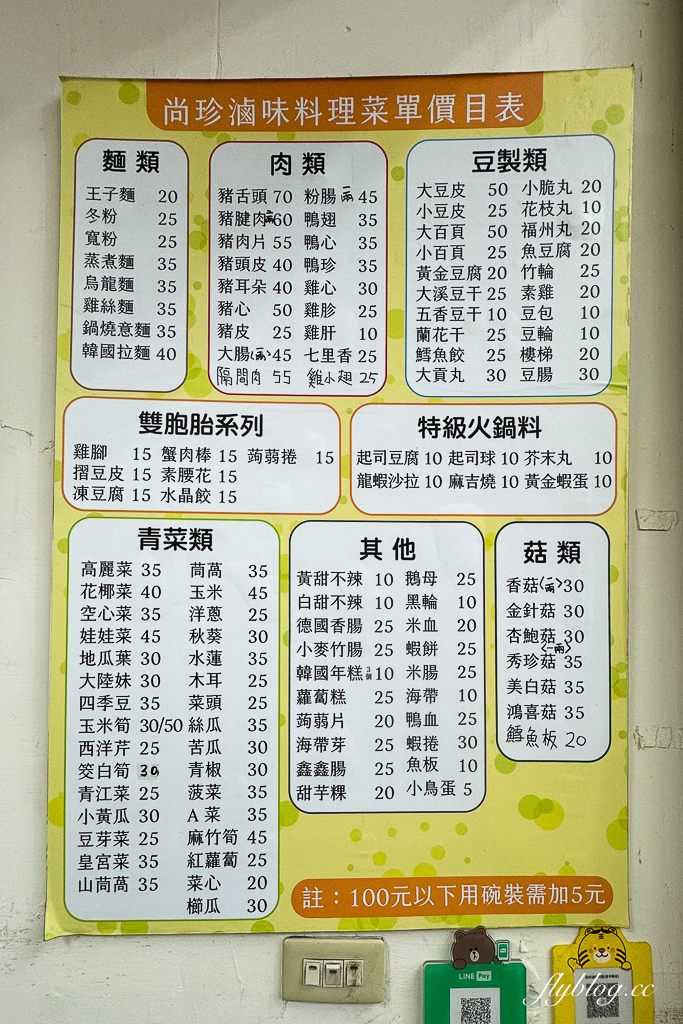 尚珍滷味料理菜單價目表
麵類
王子麵 20
冬粉 25
寬粉 25
蒸煮麵 35
烏龍麵 35
雞絲麵 35
鍋燒意麵 35
韓國拉麵 40
肉類
豬舌頭 70 粉腸(兩) 45
豬腱肉(兩) 60 鴨翅 35
豬肉片 55 鴨心 35
豬頭皮 40 鴨珍 35
豬耳朵 40 雞心 30
豬心 50 雞胗 25
豬皮 25 雞肝 10
大腸(兩) 45 七里香 25
隔間肉 55 雞小翅 25
豆製類
大豆皮 50 小脆丸 20
小豆皮 25 花枝丸 10
大百頁 50 福州丸 20
小百頁 25 魚豆腐 20
黃金豆腐 20 竹輪 25
大溪豆干 25 素雞 20
五香豆干 10 豆包 10
蘭花干 25 豆輪 10
鱈魚餃 25 樓梯 20
大貢丸 30 豆腸 30
雙胞胎系列
雞腳 15 蟹肉棒 15 蒟蒻捲 15
摺豆皮 15 素腰花 15
凍豆腐 15 水晶餃 15
特級火鍋料
起司豆腐 10 起司球 10 芥末丸 10
龍蝦沙拉 10 麻吉燒 10 黃金蝦蛋 10
青菜類
高麗菜 35 茼萵 35
花椰菜 40 玉米 45
空心菜 35 洋蔥 25
娃娃菜 45 秋葵 30
地瓜葉 30 水蓮 35
大陸妹 30 木耳 25
四季豆 35 菜頭 25
玉米筍 30/50 絲瓜 35
西洋芹 25 苦瓜 30
筊白筍 30 青椒 30
青江菜 25 菠菜 35
小黃瓜 30 A菜 35
豆芽菜 25 麻竹筍 45
皇宮菜 35 紅蘿蔔 25
山茼萵 35 菜心 20
櫛瓜 30
其他
黃甜不辣 10 鵝母 25
白甜不辣 10 黑輪 10
德國香腸 25 米血 20
小麥竹腸 25 蝦餅 25
韓國年糕3個 10 米腸 25
蘿蔔糕 25 海帶 10
蒟蒻片 20 鴨血 25
海帶芽 25 蝦捲 30
鑫鑫腸 25 魚板 10
甜芋粿 20 小鳥蛋 5
菇類
香菇(兩) 30
金針菇 30
杏鮑菇 30
<一兩>
秀珍菇 35
美白菇 35
鴻喜菇 35
鱈魚板 20
註：100元以下用碗裝需加5元
LINE Pay
flyblog.cc